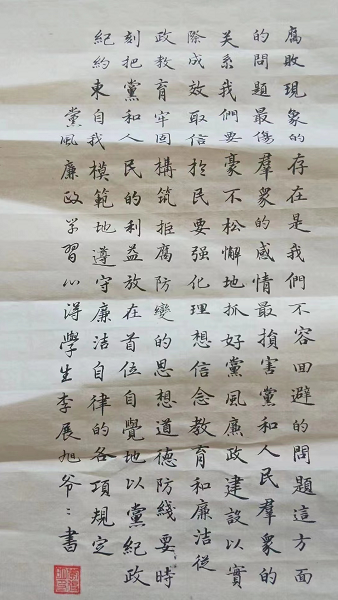 腐敗現象的存在是我們不容回避的問題這方面
的問題最傷羣衆的感情最損害黨和人民羣衆的
关系我們要毫不松懈地抓好黨風廉政建設以實
際成效取信於民要强化理想信念教育和廉洁從
政教育牢固構筑拒腐防變的思想道德防綫要時
刻把黨和人民的利益放在首位自覺地以黨紀政
紀約束自我模範地遵守廉洁自律的各項規定
黨風廉政学習心得學生李展旭爷〻書